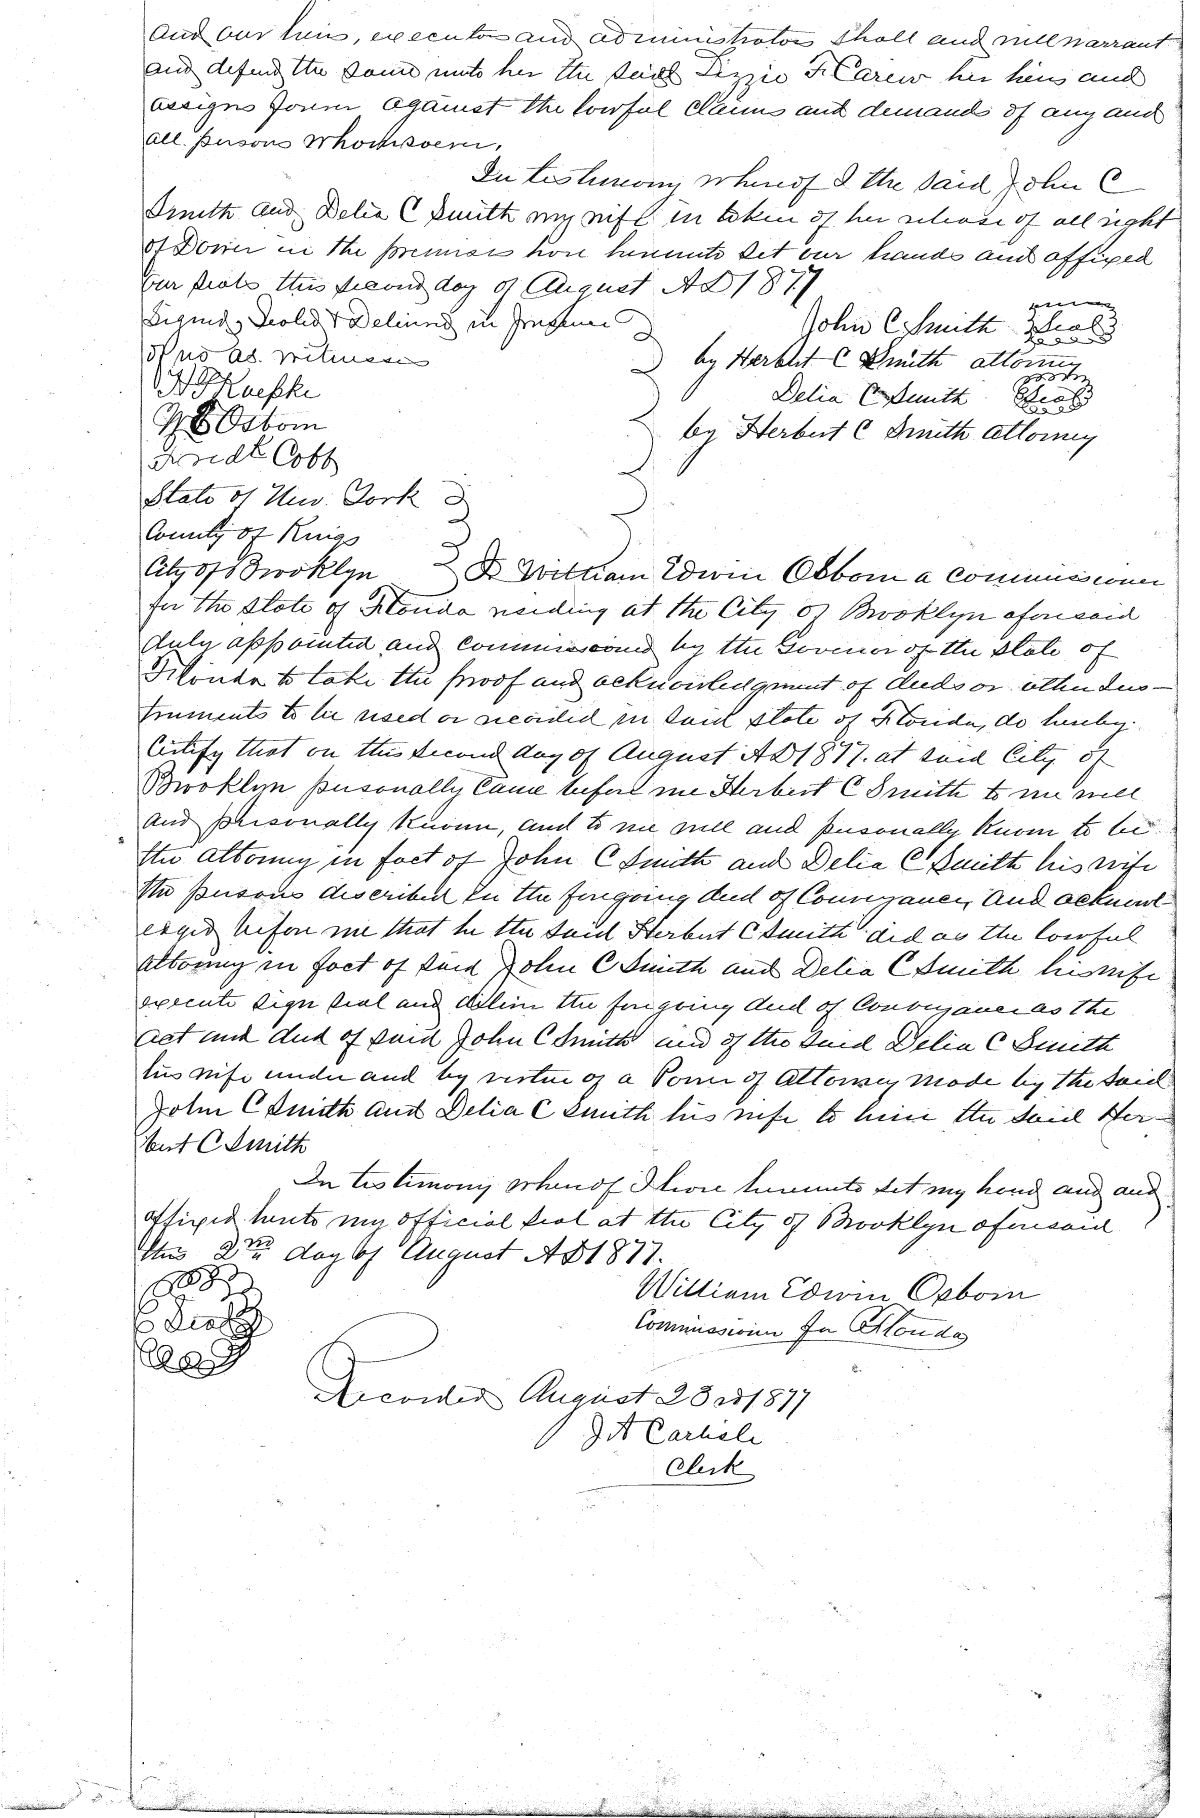 and our heirs, executors and administrators shall and will warrant
and defend the same unto her the said Lizzie F. Carew her heirs and
assigns forever against the lawful claims and demands of any and
all persons whomsoever.
In testimony whereof I the said John C
Smith and Delia C Smith my wife in token of her release of all right
of Dower in the premises have hereunto set our hands and affixed
our seals this second day of August AD 1877
Signed, Sealed & Delivered in presence
of us as witnesses
John C Smith Seal
by Herbert C Smith attorney
Delia C Smith Seal
by Herbert C Smith attorney
W E Osborn
Fredk Cobb
State of New York
County of Kings
City of Brooklyn I William Edwin Osborn a commissioner
for the State of Florida residing at the City of Brooklyn aforesaid
duly appointed and commissioned by the Governor of the State of
Florida to take the proof and acknowledgment of deeds or other Ins-
truments to be used or recorded in said state of Florida, do hereby
Certify that on this second day of August AD 1877. at said City of
Brooklyn personally came before me Herbert C Smith to me well
and personally known, and to me well and personally known to be
the attorney in fact of John C Smith and Delia C Smith his wife
the persons described in the foregoing deed of Conveyance, and acknowl-
edged before me that he the said Herbert C Smith did as the lawful
attorney in fact of said John C Smith and Delia C Smith his wife
execute sign seal and deliver the foregoing deed of Conveyance as the
act and deed of said John C Smith and of the said Delia C Smith
his wife under and by virtue of a Power of Attorney made by the said
John C Smith and Delia C Smith his wife to him the said Her-
bert C Smith
In testimony whereof I have hereunto set my hand and and
affixed hereto my official seal at the City of Brooklyn aforesaid
this 2nd day of August AD 1877.
William Edwin Osborn
Seal
Commissioner for Florida
Recorded August 23rd 1877
J A Carlisle
Clerk